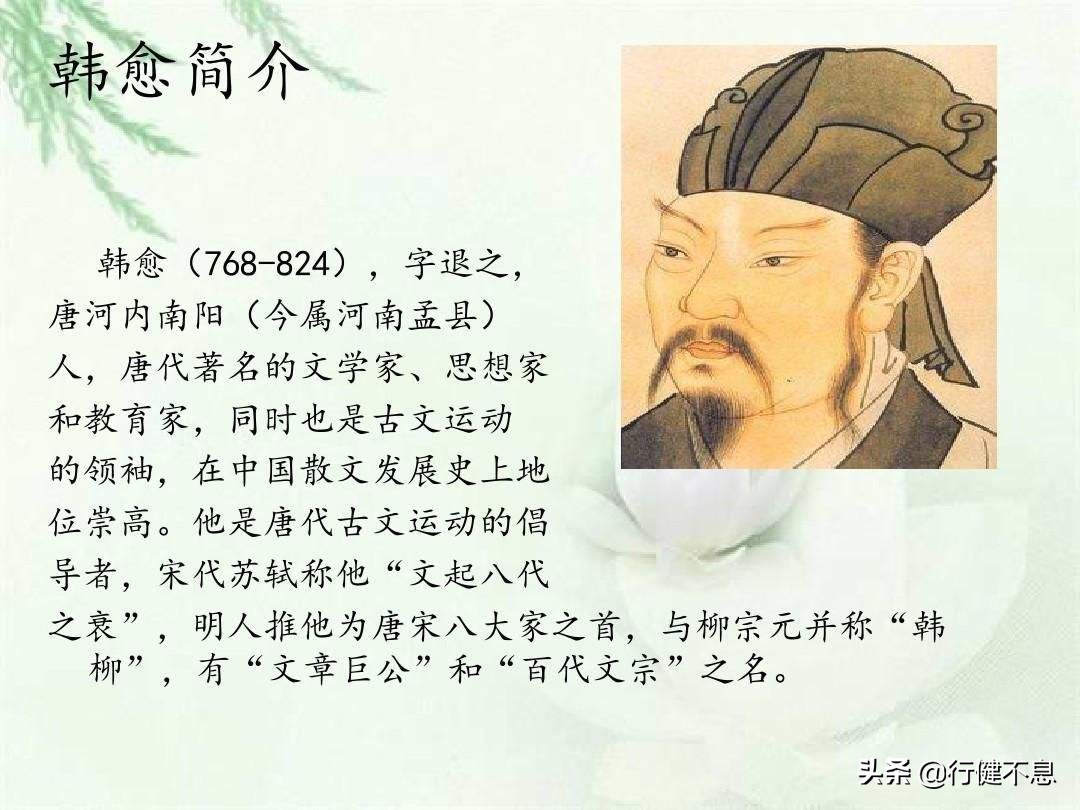 韩愈简介
韩愈（768-824），字退之，
唐河内南阳（今属河南孟县）
人，唐代著名的文学家、思想家
和教育家，同时也是古文运动
的领袖，在中国散文发展史上地
位崇高。他是唐代古文运动的倡
导者，宋代苏轼称他“文起八代
之衰”，明人推他为唐宋八大家之首，与柳宗元并称“韩
柳”，有“文章巨公”和“百代文宗”之名。
头条 @行健不息